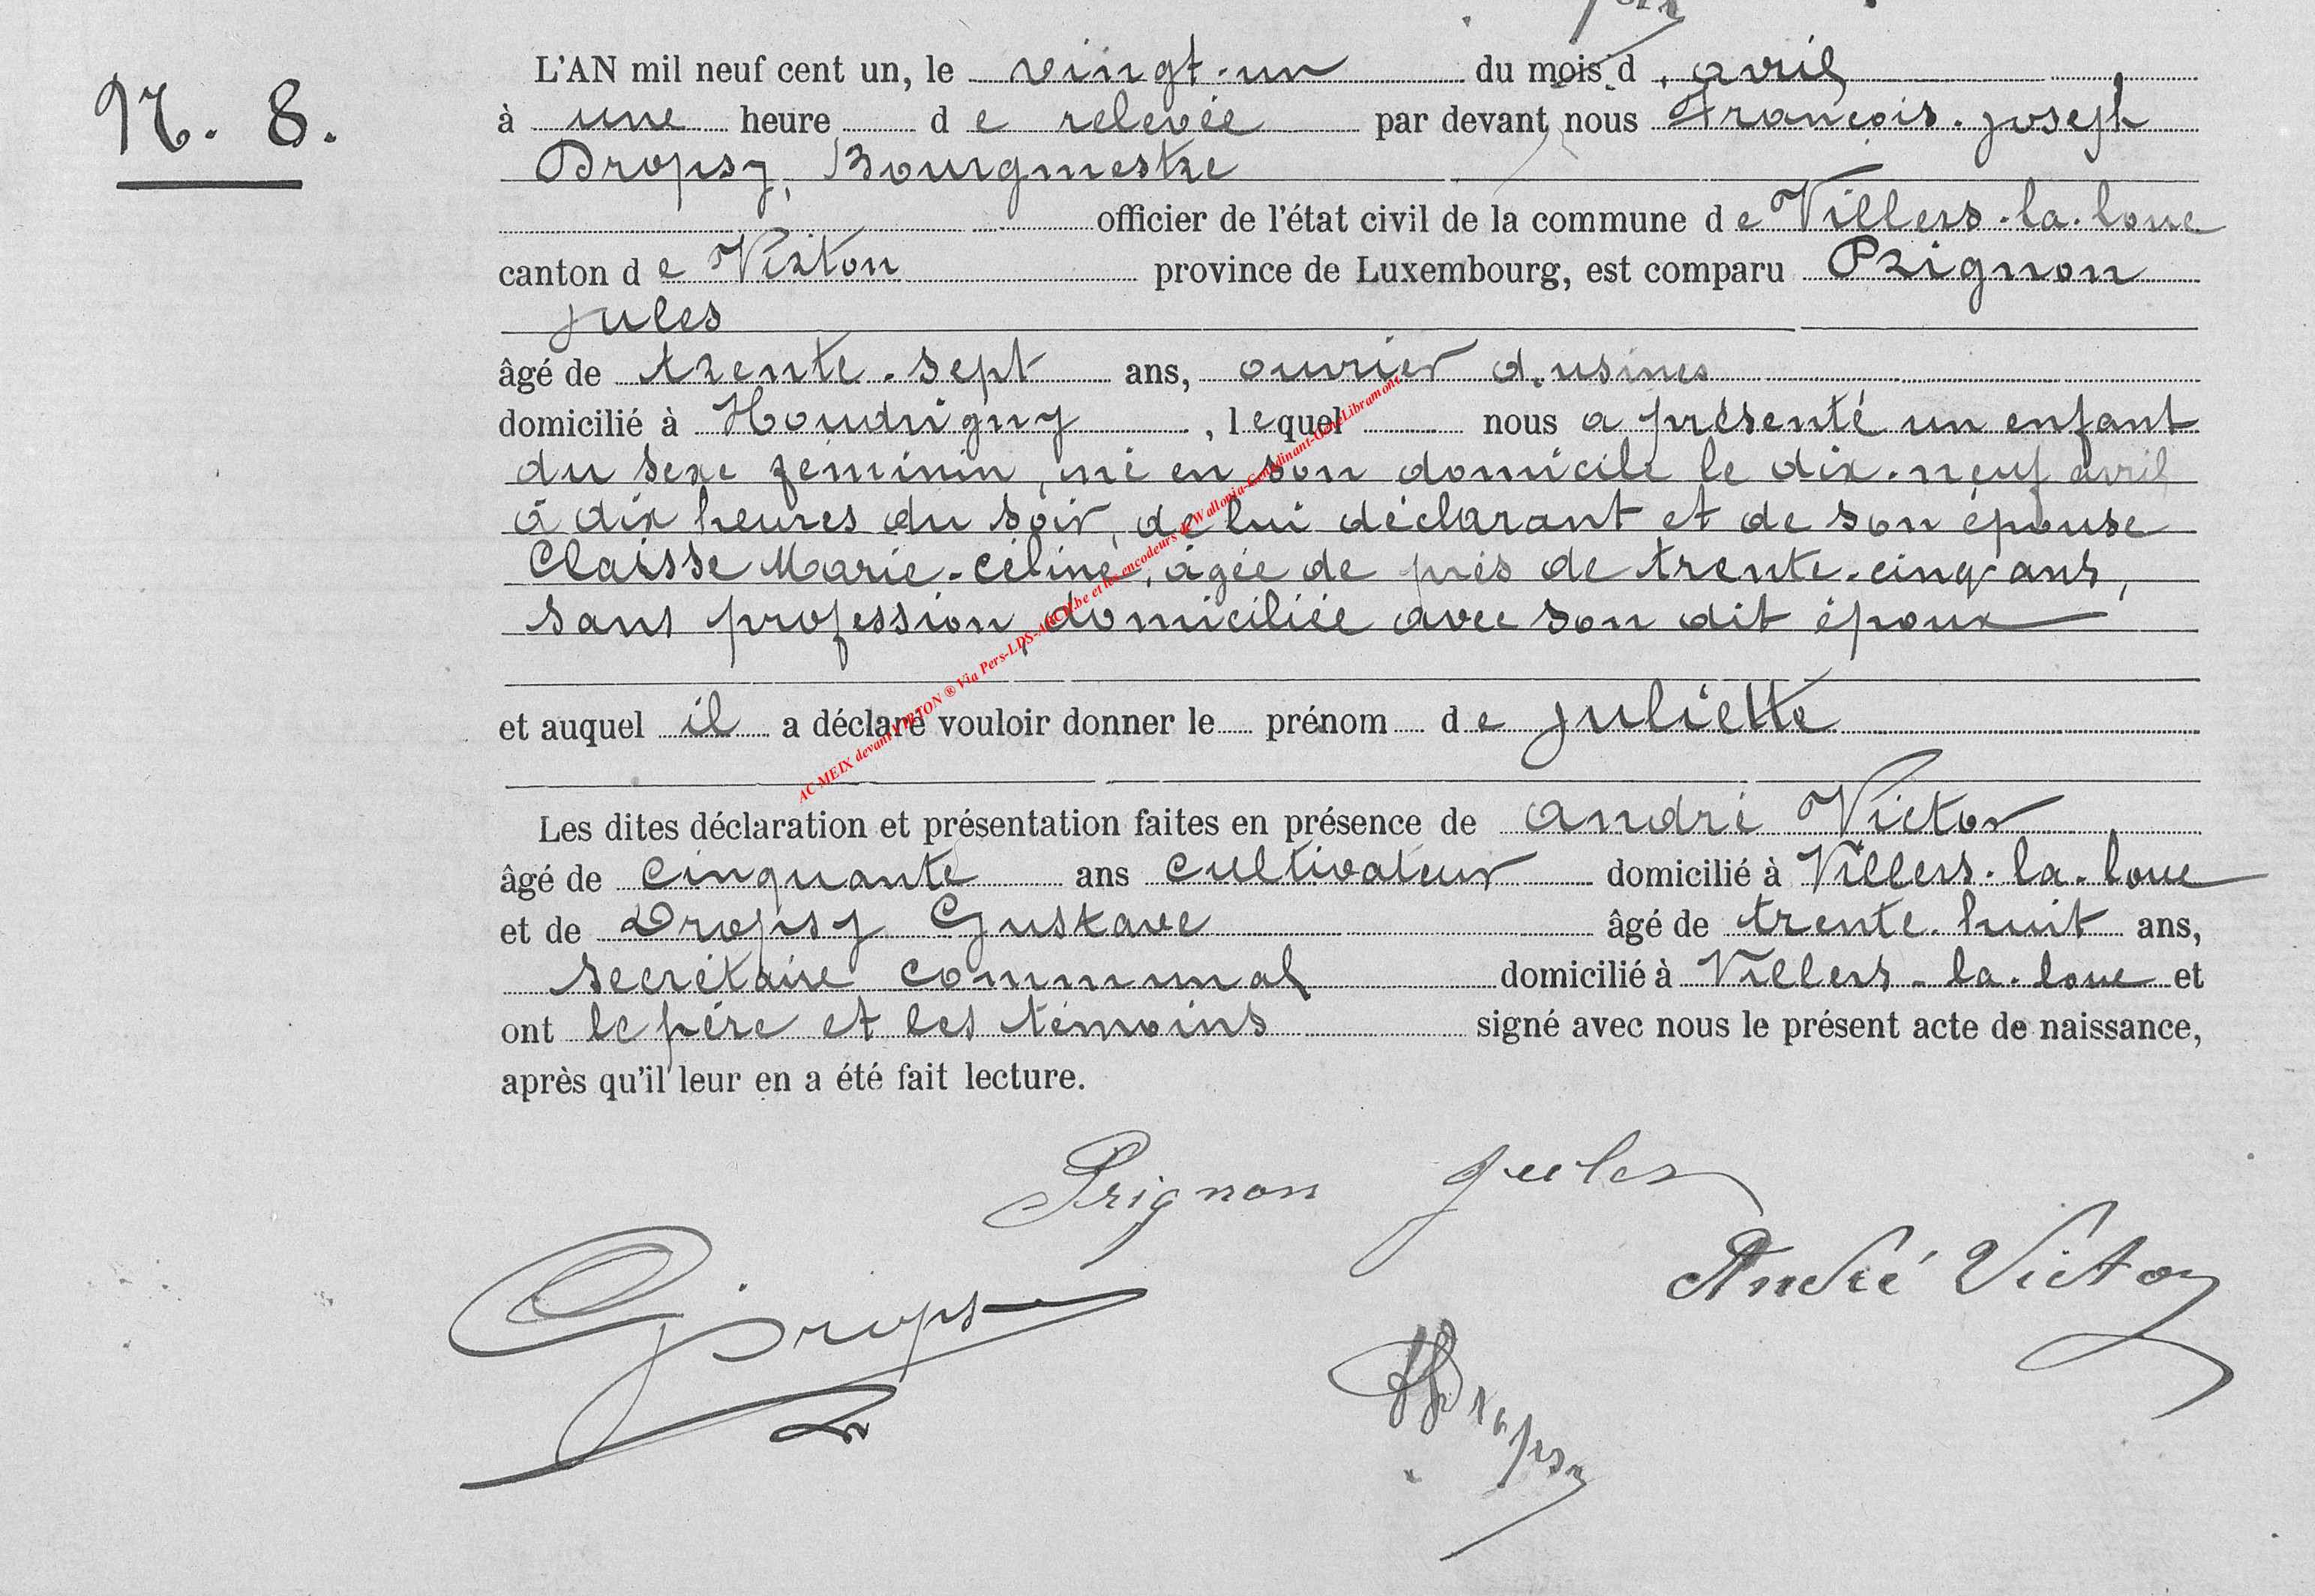 N. 8.
L'AN mil neuf cent un, le vingt-un du mois d'avril
à une heure de relevée par devant nous François-Joseph
Dropsy, Bourgmestre
officier de l'état civil de la commune de Villers-la-loue
canton de Virton province de Luxembourg, est comparu Prignon
Jules
âgé de trente-sept ans, ouvrier d'usines
domicilié à Houdrigny, lequel nous a présenté un enfant
du sexe féminin, né en son domicile le dix-neuf avril
à dix heures du soir, de lui déclarant et de son épouse
Claisse Marie-Céline, âgée de près de trente-cinq ans,
sans profession, domiciliée avec son dit époux
et auquel il a déclaré vouloir donner le prénom de Juliette
Les dites déclaration et présentation faites en présence de André Victor
âgé de cinquante ans cultivateur domicilié à Villers-la-loue
et de Dropsy Gustave âgé de trente-huit ans,
secrétaire communal domicilié à Villers-la-loue et
ont le père et les témoins signé avec nous le présent acte de naissance,
après qu'il leur en a été fait lecture.
Prignon Jules
André Victor
G Dropsy
FJDropsy
AC MEIX devant VIRTON ® Via Pers-LDS-ARCH.be et les encodeurs de Wallonia-Condinant-GeneLibramont